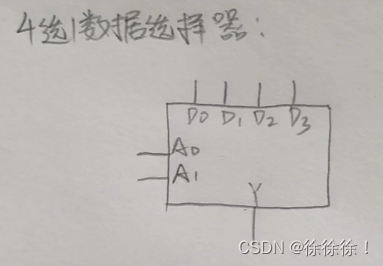 4选1数据选择器：
D0 D1 D2 D3
A0
A1
Y
CSDN @徐徐徐！